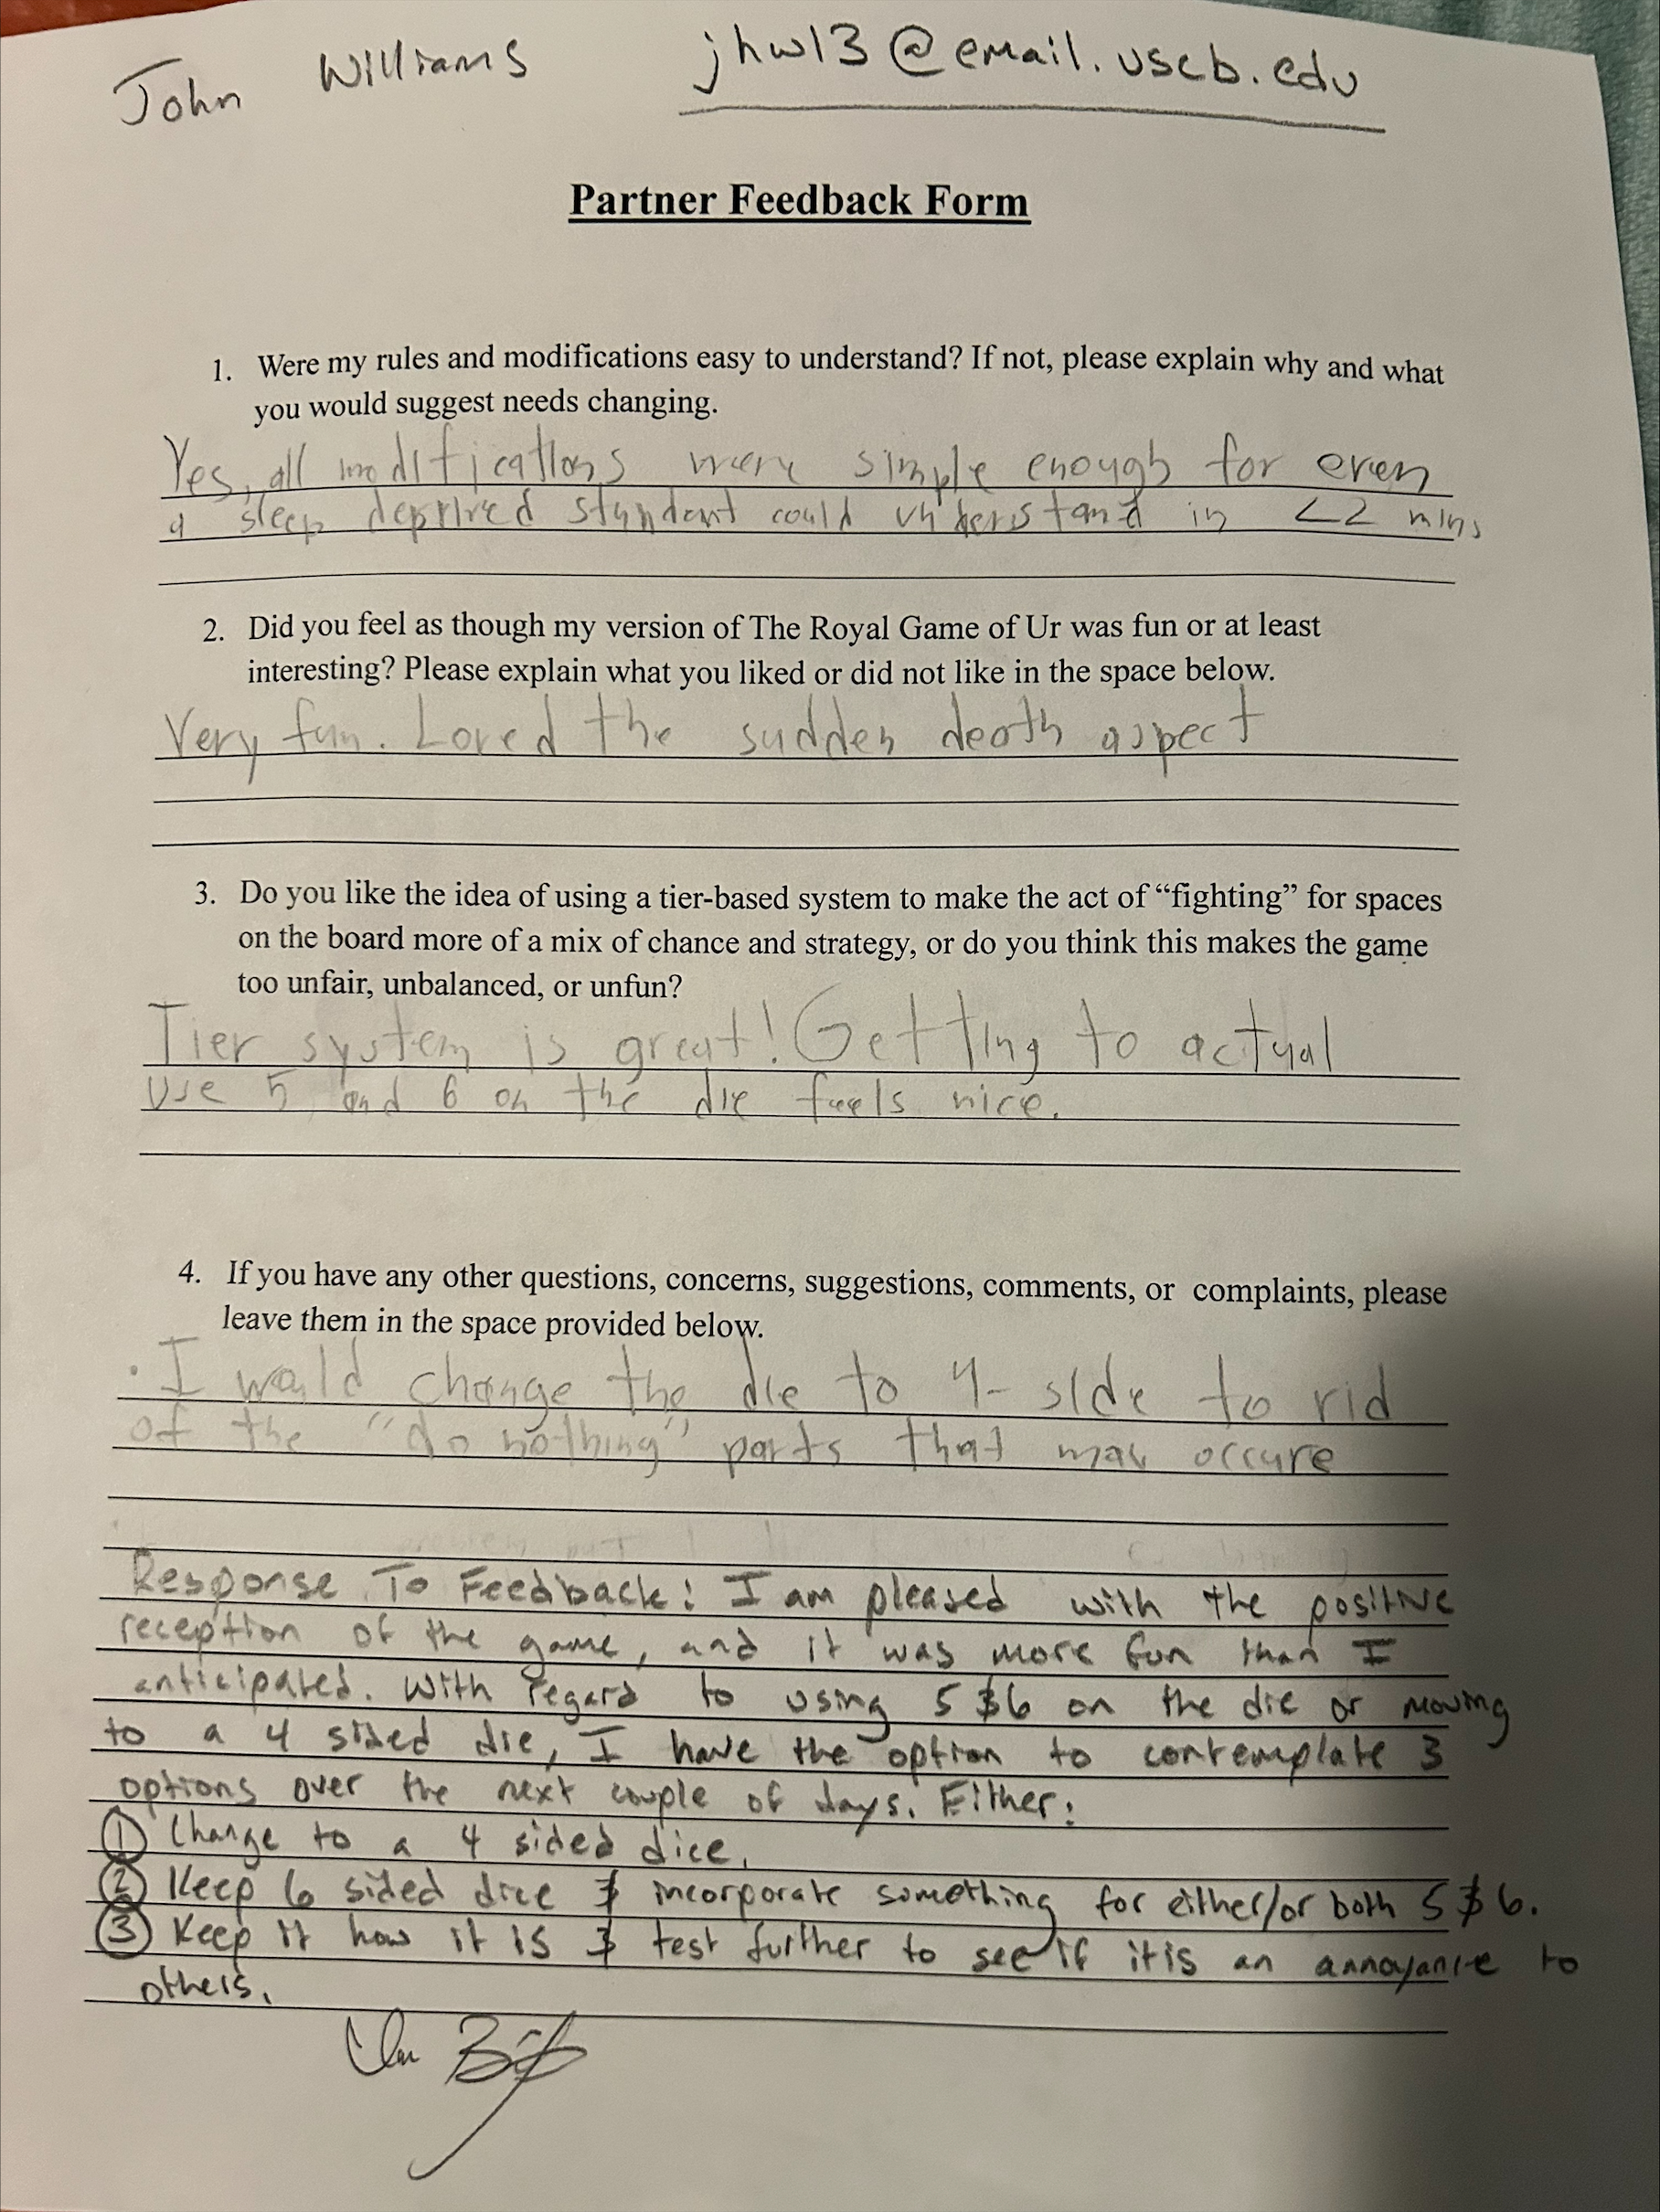 John Williams jhw13@email.uscb.edu
Partner Feedback Form
1. Were my rules and modifications easy to understand? If not, please explain why and what
you would suggest needs changing.
Yes, all modifications were simple enough for even
a sleep deprived student could understand in <2 mins
2. Did you feel as though my version of The Royal Game of Ur was fun or at least
interesting? Please explain what you liked or did not like in the space below.
Very fun. Loved the sudden death aspect
3. Do you like the idea of using a tier-based system to make the act of “fighting” for spaces
on the board more of a mix of chance and strategy, or do you think this makes the game
too unfair, unbalanced, or unfun?
Tier system is great! Getting to actual
use 5 and 6 on the die feels nice.
4. If you have any other questions, concerns, suggestions, comments, or complaints, please
leave them in the space provided below.
· I would change the die to 4-side to rid
of the "do nothing" parts that may occure
Response To Feedback: I am pleased with the positive
reception of the game, and it was more fun than I
anticipated. With regard to using 5 & 6 on the die or moving
to a 4 sided die, I have the option to contemplate 3
options over the next couple of days. Either:
① Change to a 4 sided dice.
② Keep 6 sided dice & incorporate something for either/or both 5 & 6.
③ Keep it how it is & test further to see if it is an annoyance to
others.